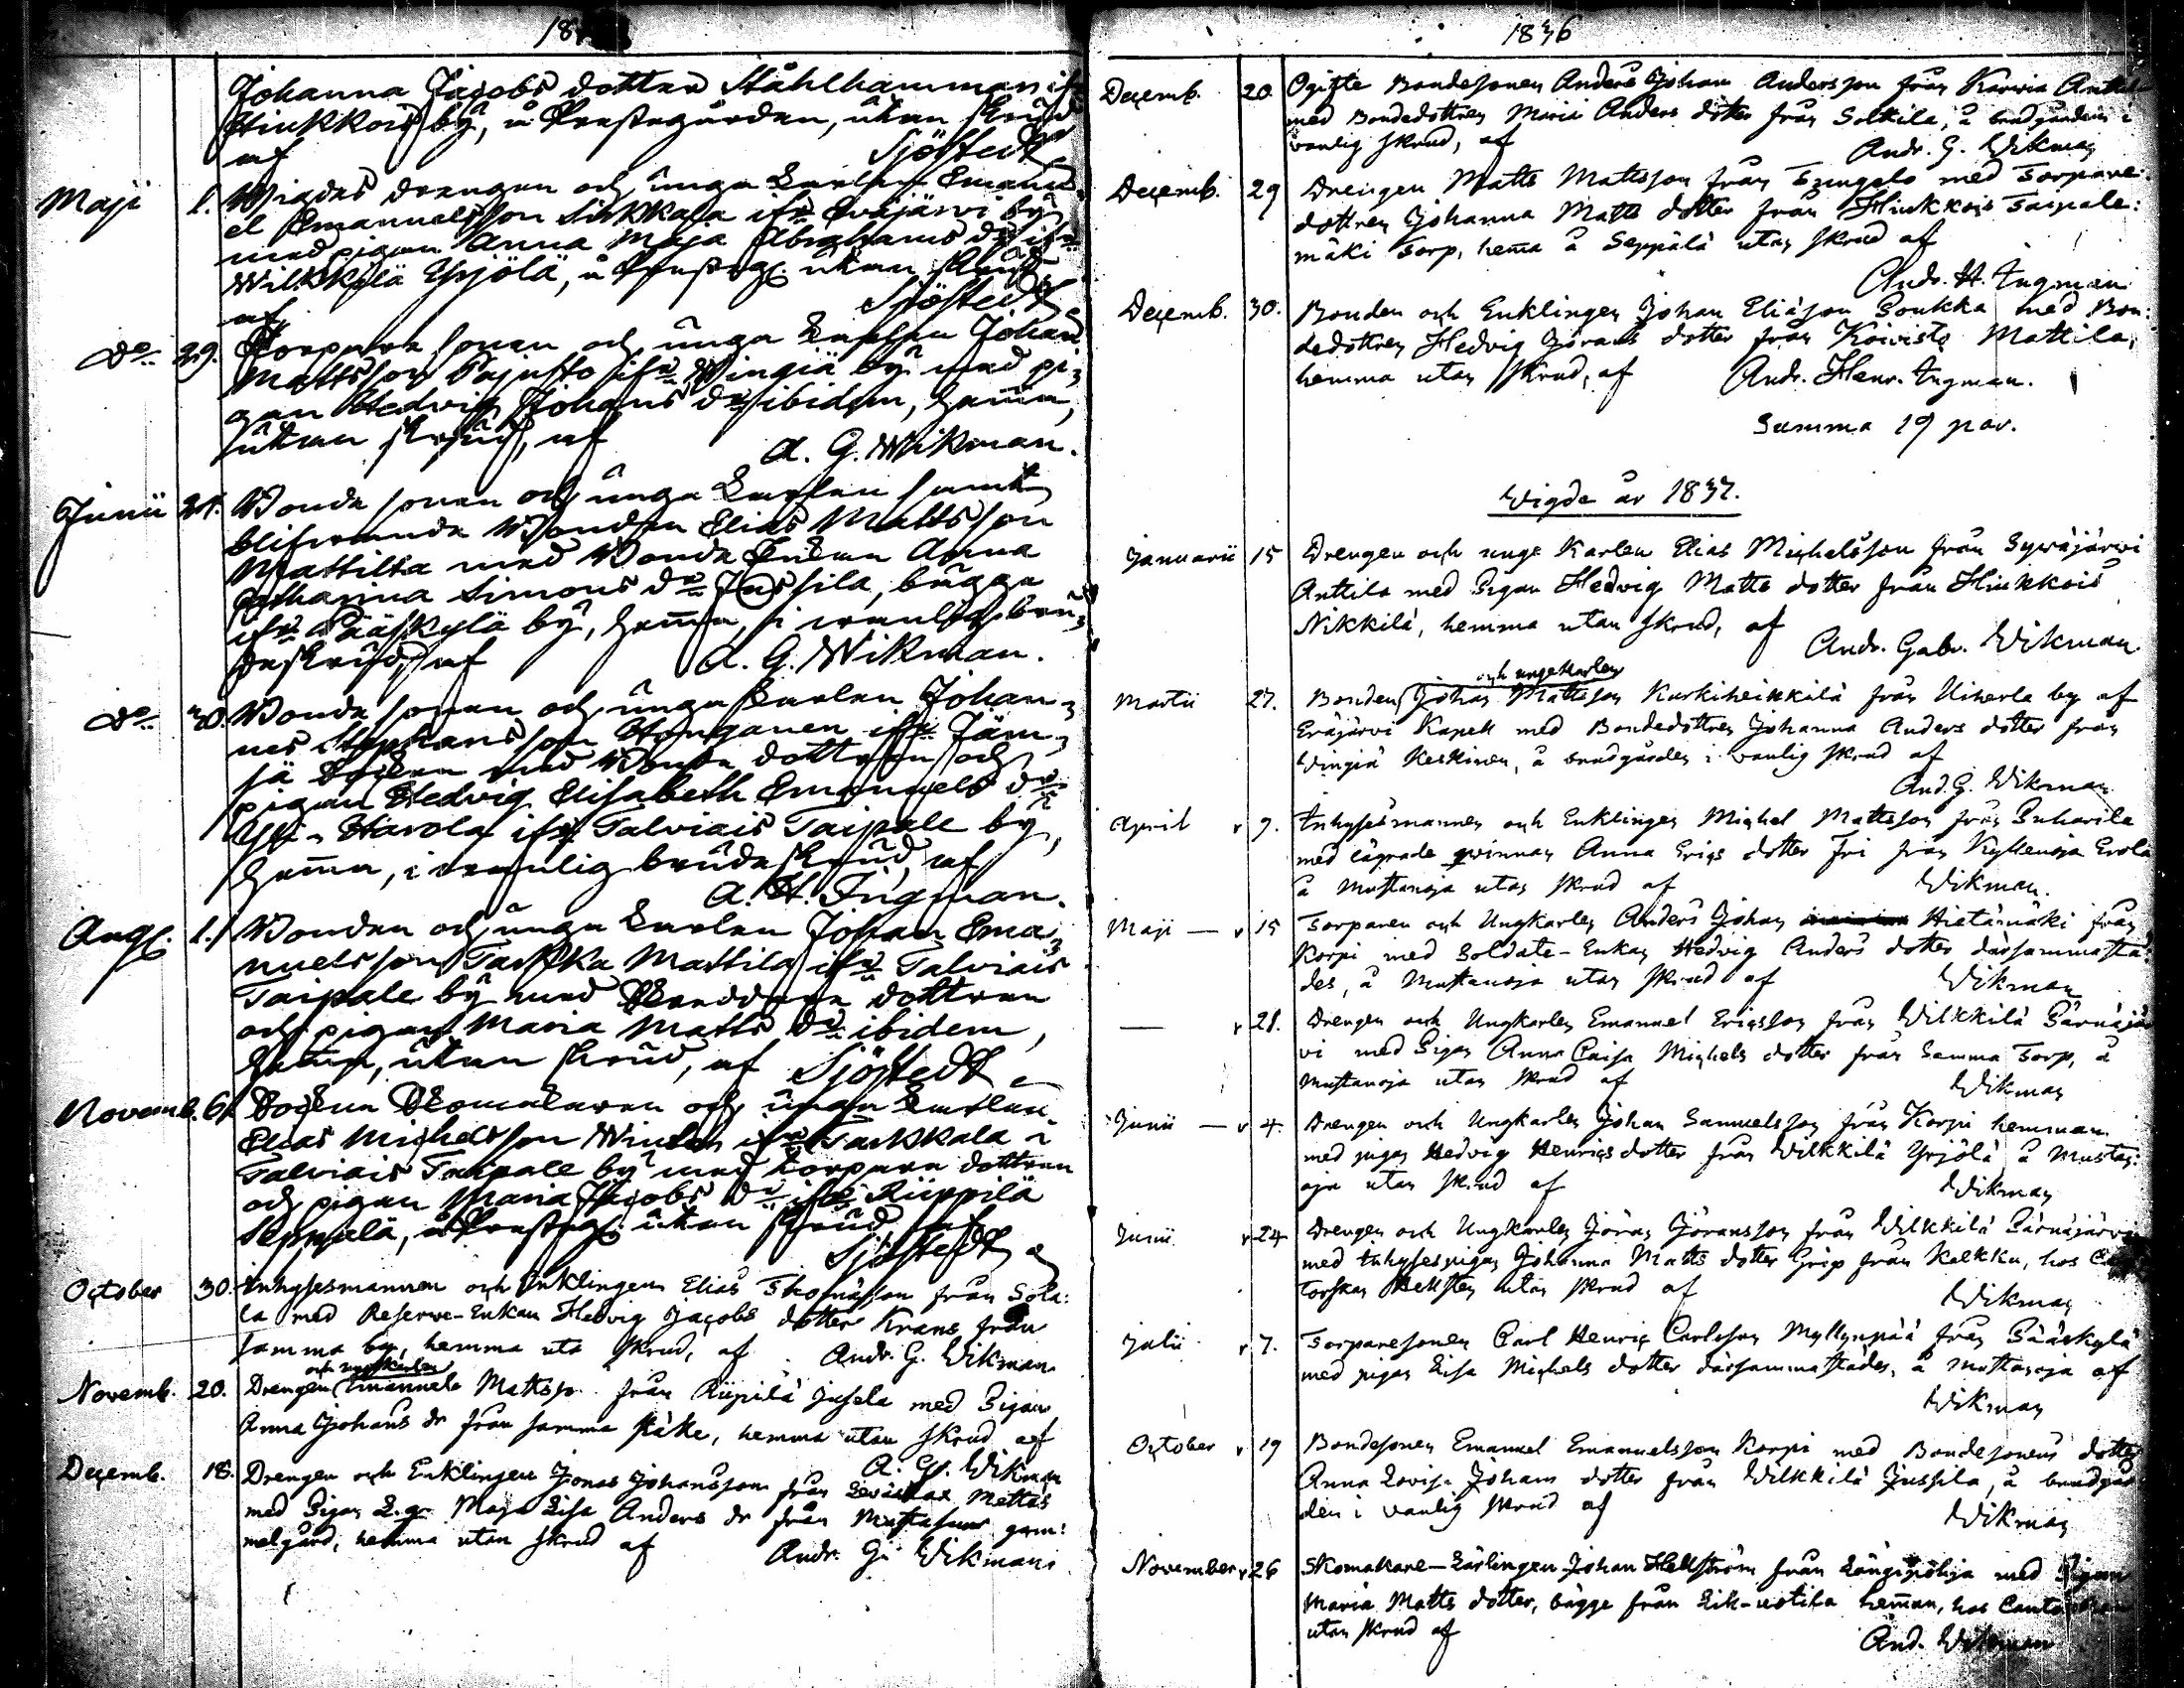 18
Johanna Jacobs dotter Ståhlhammar ifr
Hinkkois by, å Prestegården, utan skrud
af Sjöstedt
Maji 1. Wigdes drengen och unga karlen Emanu-
el Emanuelsson Sirkkala ifr. Eräjärvi by
med pigan Anna Maja Abrahams dr ifr
Wilkkilä Yrjölä, å Presteg. utan skrud
af Sjöstedt
do 29. Torpare sonen och unga karlen Johan
Mattsson Pajusto ifr Wingiä by med pi-
gan Hedvig Johans dr ibidem, hema,
utan skrud, af A. G. Wikman.
Junii 21. Bonde sonen och unga karlen samt
blifvande Bonden Elias Mattsson
Mattilla med Bonde Enkan Anna
Johanna Simons dr Jussila, bägge
ifr Pääskylä by, hema, i vanlig bru-
deskrud, af A. G. Wikman.
do 30. Bonde sonen och unga karlen Johan-
nes Stephansson Honganen ifr Jäm-
sä Socken med Bonde dottren och
pigan Hedvig Elisabeth Emanuels dr
Yli-Harola ifr Talviais Taipale by,
hema, i vanlig brudeskrud, af
A. H. Ingman.
Aug. 1. Bonden och unga karlen Johan Ema-
nuelsson Taskka Mattila ifr Talviais
Taipale by med dottren
och pigan Maria Matts dr ibidem,
hema, utan skrud, af Sjöstedt
Novemb. 6. Socken Skomakaren och unga karlen
Elias Michelsson Winter ifr Taskkala i
Talviais Taipale by med torpare dottren
och pigan Maria Jacobs dr ifr Riippilä
Seppälä, å Presteg. utan skrud af
Sjöstedt
October 30. Inhysesmannen och Enklingen Elias Thomasson från Sola:
la med Reserve-Enkan Hedvig Jacobs dotter Krans från
samma by, hemma uta skrud, af Andr. G. Wikman
och ungkarlen
Novemb. 20. Drengen Emanuel Mattsso från Riipilä Jusela med Pigan
Anna Johans dr från samma ställe, hemma utan skrud af
A. G. Wikman
Decemb. 18. Drengen och Enklingen Jonas Johansson från Mattas
med Pigan Maja Lisa Anders dr från gam:
melgård, hemma utan skrud af Andr. G. Wikman
1836
Decemb. 20 Ogifte Bondesonen Anders Johan Andersson från Karvia Anttila
med Bondedottren Maria Anders dotter från Solkila, å brudgården i
vanlig skrud, af Andr. G. Wikman
Decemb. 29 Drengen Matts Mattsson från med Torpare
dottren Johanna Matts dotter från Hinkkois Taipale:
mäki Torp, hema å Seppälä utan skrud af
Andr. H. Ingman
Decemb. 30. Bonden och Enklingen Johan Eliasson Soukka med Bon:
dedottren Hedvig Görans dotter från Koivisto Mattila,
hemma utan skrud, af Andr. Henr. Ingman.
Summa 19 par.
Wigde år 1837.
Januarii 15 Drengen och unge Karlen Elias Michelsson från Syväjärvi
Anttila med Pigan Hedvig Matts dotter från Hinkkois
Nikkilä, hemma utan skrud, af Andr. Gabr. Wikman
och unge Karlen
Martii 27. Bonden Johan Mattsson Kurkiheikkilä från Uiherla by af
Eräjärvi Kapell med Bondedottren Johanna Anders dotter från
Wingiä Keskinen, å brudgården i vanlig skrud af
And. G. Wikman
April 9. Inhysesmannen och Enklingen Michel Mattsson från Puharila
med lägrade qvinnan Anna Erics dotter Fri från Kyllenoja Erola
å Mustanoja utan skrud af Wikman.
Maji 15 Torparen och Ungkarlen Anders Johan Hietamäki från
Korpi med Soldats-Enkan Hedvig Anders dotter därsammastä:
des, å Mustanoja utan skrud af Wikman
— 28. Drengen och Ungkarlen Emanuel Ericsson från Wilkkilä Särnäjär
vi med Pigan Anna Caisa Michels dotter från samma Torp, å
Mustanoja utan skrud af Wikman
Junii 4. Drengen och Ungkarlen Johan Samuelsson från Korpi hemman
med pigan Hedvig Henrics dotter från Wilkkilä Yrjölä å Mustan:
oja utan skrud af Wikman
Junii 24 Drengen och Ungkarlen Göran Göransson från Wilkkilä Särnäjärvi
med Inhysespigan Johanna Matts dotter Grip från Kelkku, hos
Torskan Hellsten utan skrud af Wikman
Julii 7. Torparesonen Carl Henric Carlsson Myllynpää från Pääskylä
med pigan Lisa Michels dotter därsammastädes, å Mustanoja af
Wikman
October 19 Bondesonen Emanuel Emanuelsson Korpi med Bondesonens dotter
Anna Lovisa Johans dotter från Wilkkilä Jussila, å brudgår
den i vanlig skrud af Wikman
November 26 Skomakare-Lärlingen Johan Hellström från Längipohja med Pigan
Maria Matts dotter, bägge från heman, hos
utan skrud af And. Wikman